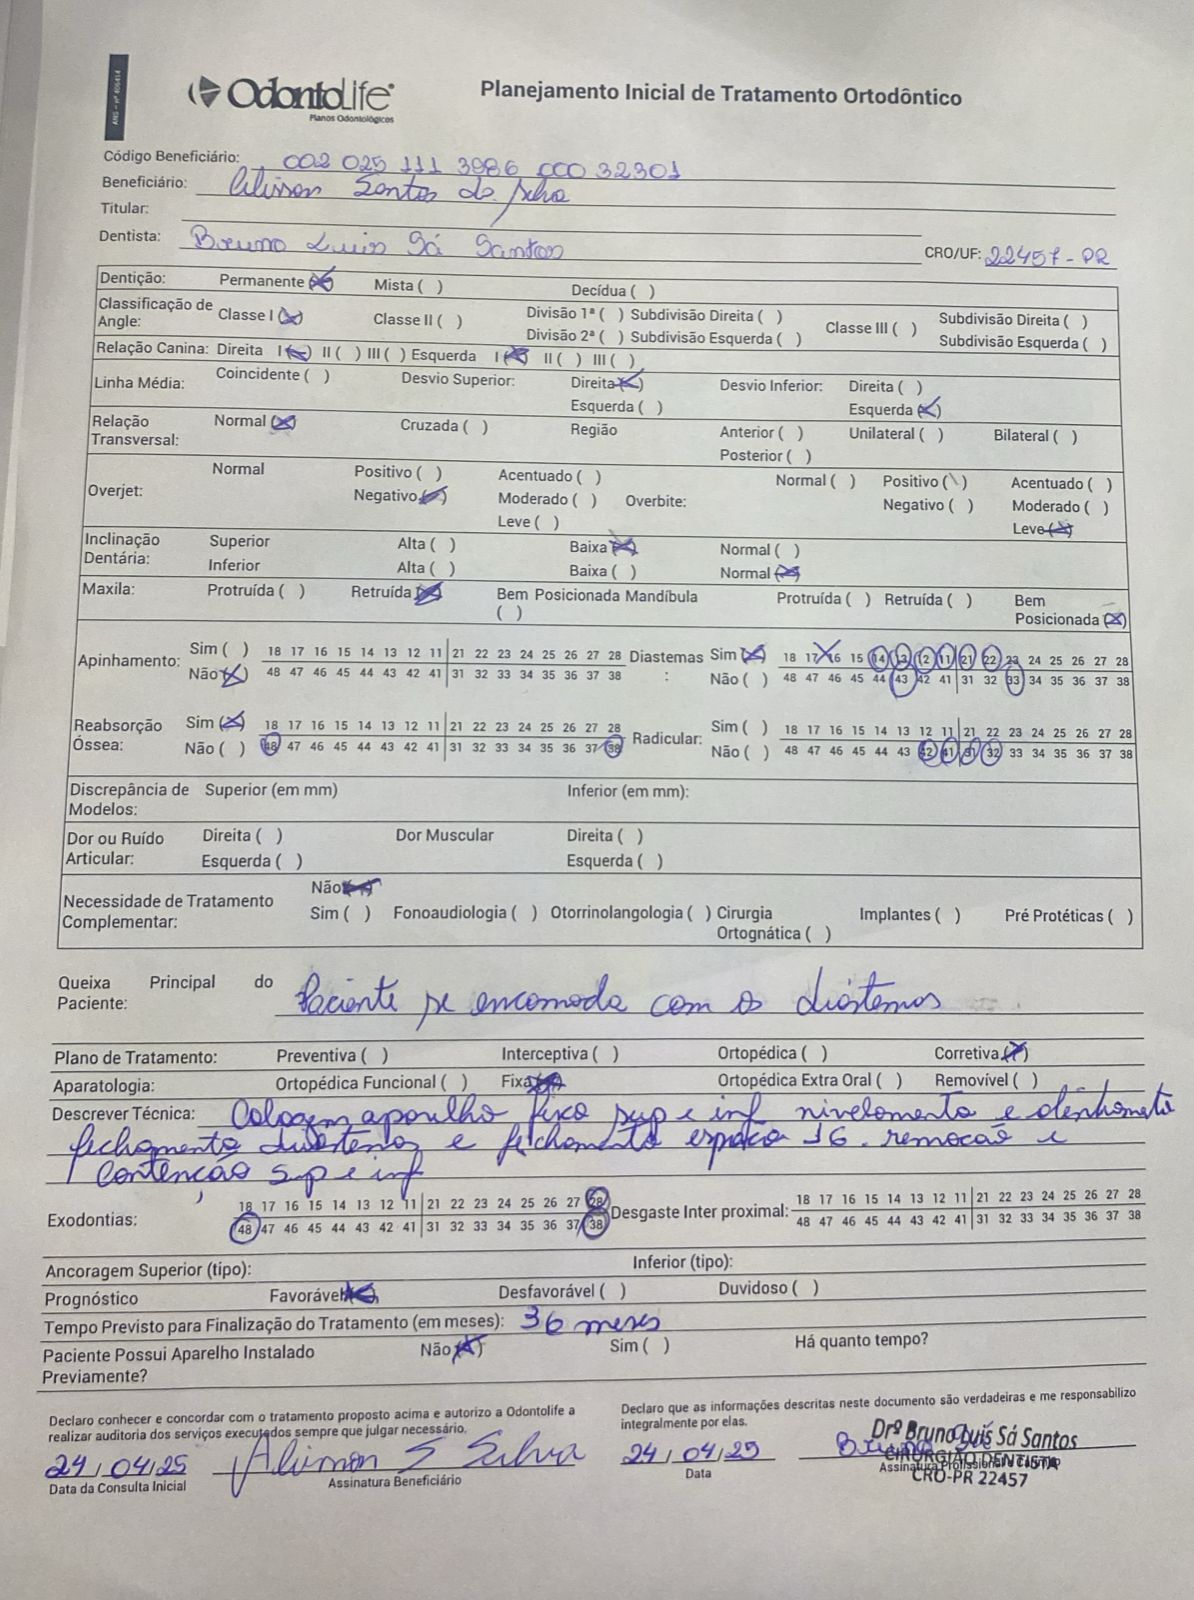 ANS - nº 406414
OdontoLife
Planos Odontológicos
Planejamento Inicial de Tratamento Ortodôntico
Código Beneficiário: 002 025 111 3986 000 32301
Beneficiário: Alisson Santos da Silva
Titular:
Dentista: Bruno Luis Sá Santos CRO/UF: 22457-PR
Dentição: Permanente (X) Mista ( ) Decídua ( )
Classificação de Angle: Classe I (X) Classe II ( ) Divisão 1ª ( ) Subdivisão Direita ( ) Classe III ( ) Subdivisão Direita ( )
Divisão 2ª ( ) Subdivisão Esquerda ( ) Subdivisão Esquerda ( )
Relação Canina: Direita I (X) II ( ) III ( ) Esquerda I (X) II ( ) III ( )
Linha Média: Coincidente ( ) Desvio Superior: Direita (X) Desvio Inferior: Direita ( )
Esquerda ( ) Esquerda (X)
Relação Transversal: Normal (X) Cruzada ( ) Região Anterior ( ) Unilateral ( ) Bilateral ( )
Posterior ( )
Overjet: Normal Positivo ( ) Acentuado ( ) Overbite: Normal ( ) Positivo (\) Acentuado ( )
Negativo (X) Moderado ( ) Negativo ( ) Moderado ( )
Leve ( ) Leve (X)
Inclinação Dentária: Superior Alta ( ) Baixa (X) Normal ( )
Inferior Alta ( ) Baixa ( ) Normal (X)
Maxila: Protruída ( ) Retruída (X) Bem Posicionada ( ) Mandíbula Protruída ( ) Retruída ( ) Bem Posicionada (X)
Apinhamento: Sim ( ) 18 17 16 15 14 13 12 11 21 22 23 24 25 26 27 28 Diastemas: Sim (X) 18 17 16 15 14 13 12 11 21 22 23 24 25 26 27 28
Não (X) 48 47 46 45 44 43 42 41 31 32 33 34 35 36 37 38 Não ( ) 48 47 46 45 44 43 42 41 31 32 33 34 35 36 37 38
Reabsorção Óssea: Sim (X) 18 17 16 15 14 13 12 11 21 22 23 24 25 26 27 28 Radicular: Sim ( ) 18 17 16 15 14 13 12 11 21 22 23 24 25 26 27 28
Não ( ) 48 47 46 45 44 43 42 41 31 32 33 34 35 36 37 38 Não ( ) 48 47 46 45 44 43 42 41 31 32 33 34 35 36 37 38
Discrepância de Modelos: Superior (em mm) Inferior (em mm):
Dor ou Ruído Articular: Direita ( ) Dor Muscular Direita ( )
Esquerda ( ) Esquerda ( )
Necessidade de Tratamento Complementar: Não (X)
Sim ( ) Fonoaudiologia ( ) Otorrinolangologia ( ) Cirurgia Ortognática ( ) Implantes ( ) Pré Protéticas ( )
Queixa Principal do Paciente: Paciente se encomoda com os diástemas
Plano de Tratamento: Preventiva ( ) Interceptiva ( ) Ortopédica ( ) Corretiva (X)
Aparatologia: Ortopédica Funcional ( ) Fixa (X) Ortopédica Extra Oral ( ) Removível ( )
Descrever Técnica: Colagem aparelho fixo sup e inf nivelamento e alinhamento
fechamento diastemas e fechamento espaço 16. remoção e
contenção sup e inf
Exodontias: 18 17 16 15 14 13 12 11 21 22 23 24 25 26 27 28 Desgaste Inter proximal: 18 17 16 15 14 13 12 11 21 22 23 24 25 26 27 28
48 47 46 45 44 43 42 41 31 32 33 34 35 36 37 38 48 47 46 45 44 43 42 41 31 32 33 34 35 36 37 38
Ancoragem Superior (tipo): Inferior (tipo):
Prognóstico Favorável (X) Desfavorável ( ) Duvidoso ( )
Tempo Previsto para Finalização do Tratamento (em meses): 36 meses
Paciente Possui Aparelho Instalado Previamente? Não (X) Sim ( ) Há quanto tempo?
Declaro conhecer e concordar com o tratamento proposto acima e autorizo a Odontolife a
realizar auditoria dos serviços executados sempre que julgar necessário.
24/04/25 Alisson S Silva
Data da Consulta Inicial Assinatura Beneficiário
Declaro que as informações descritas neste documento são verdadeiras e me responsabilizo
integralmente por elas.
24/04/25
Data
Drº Bruno Luis Sá Santos
CIRURGIÃO DENTISTA
CRO-PR 22457